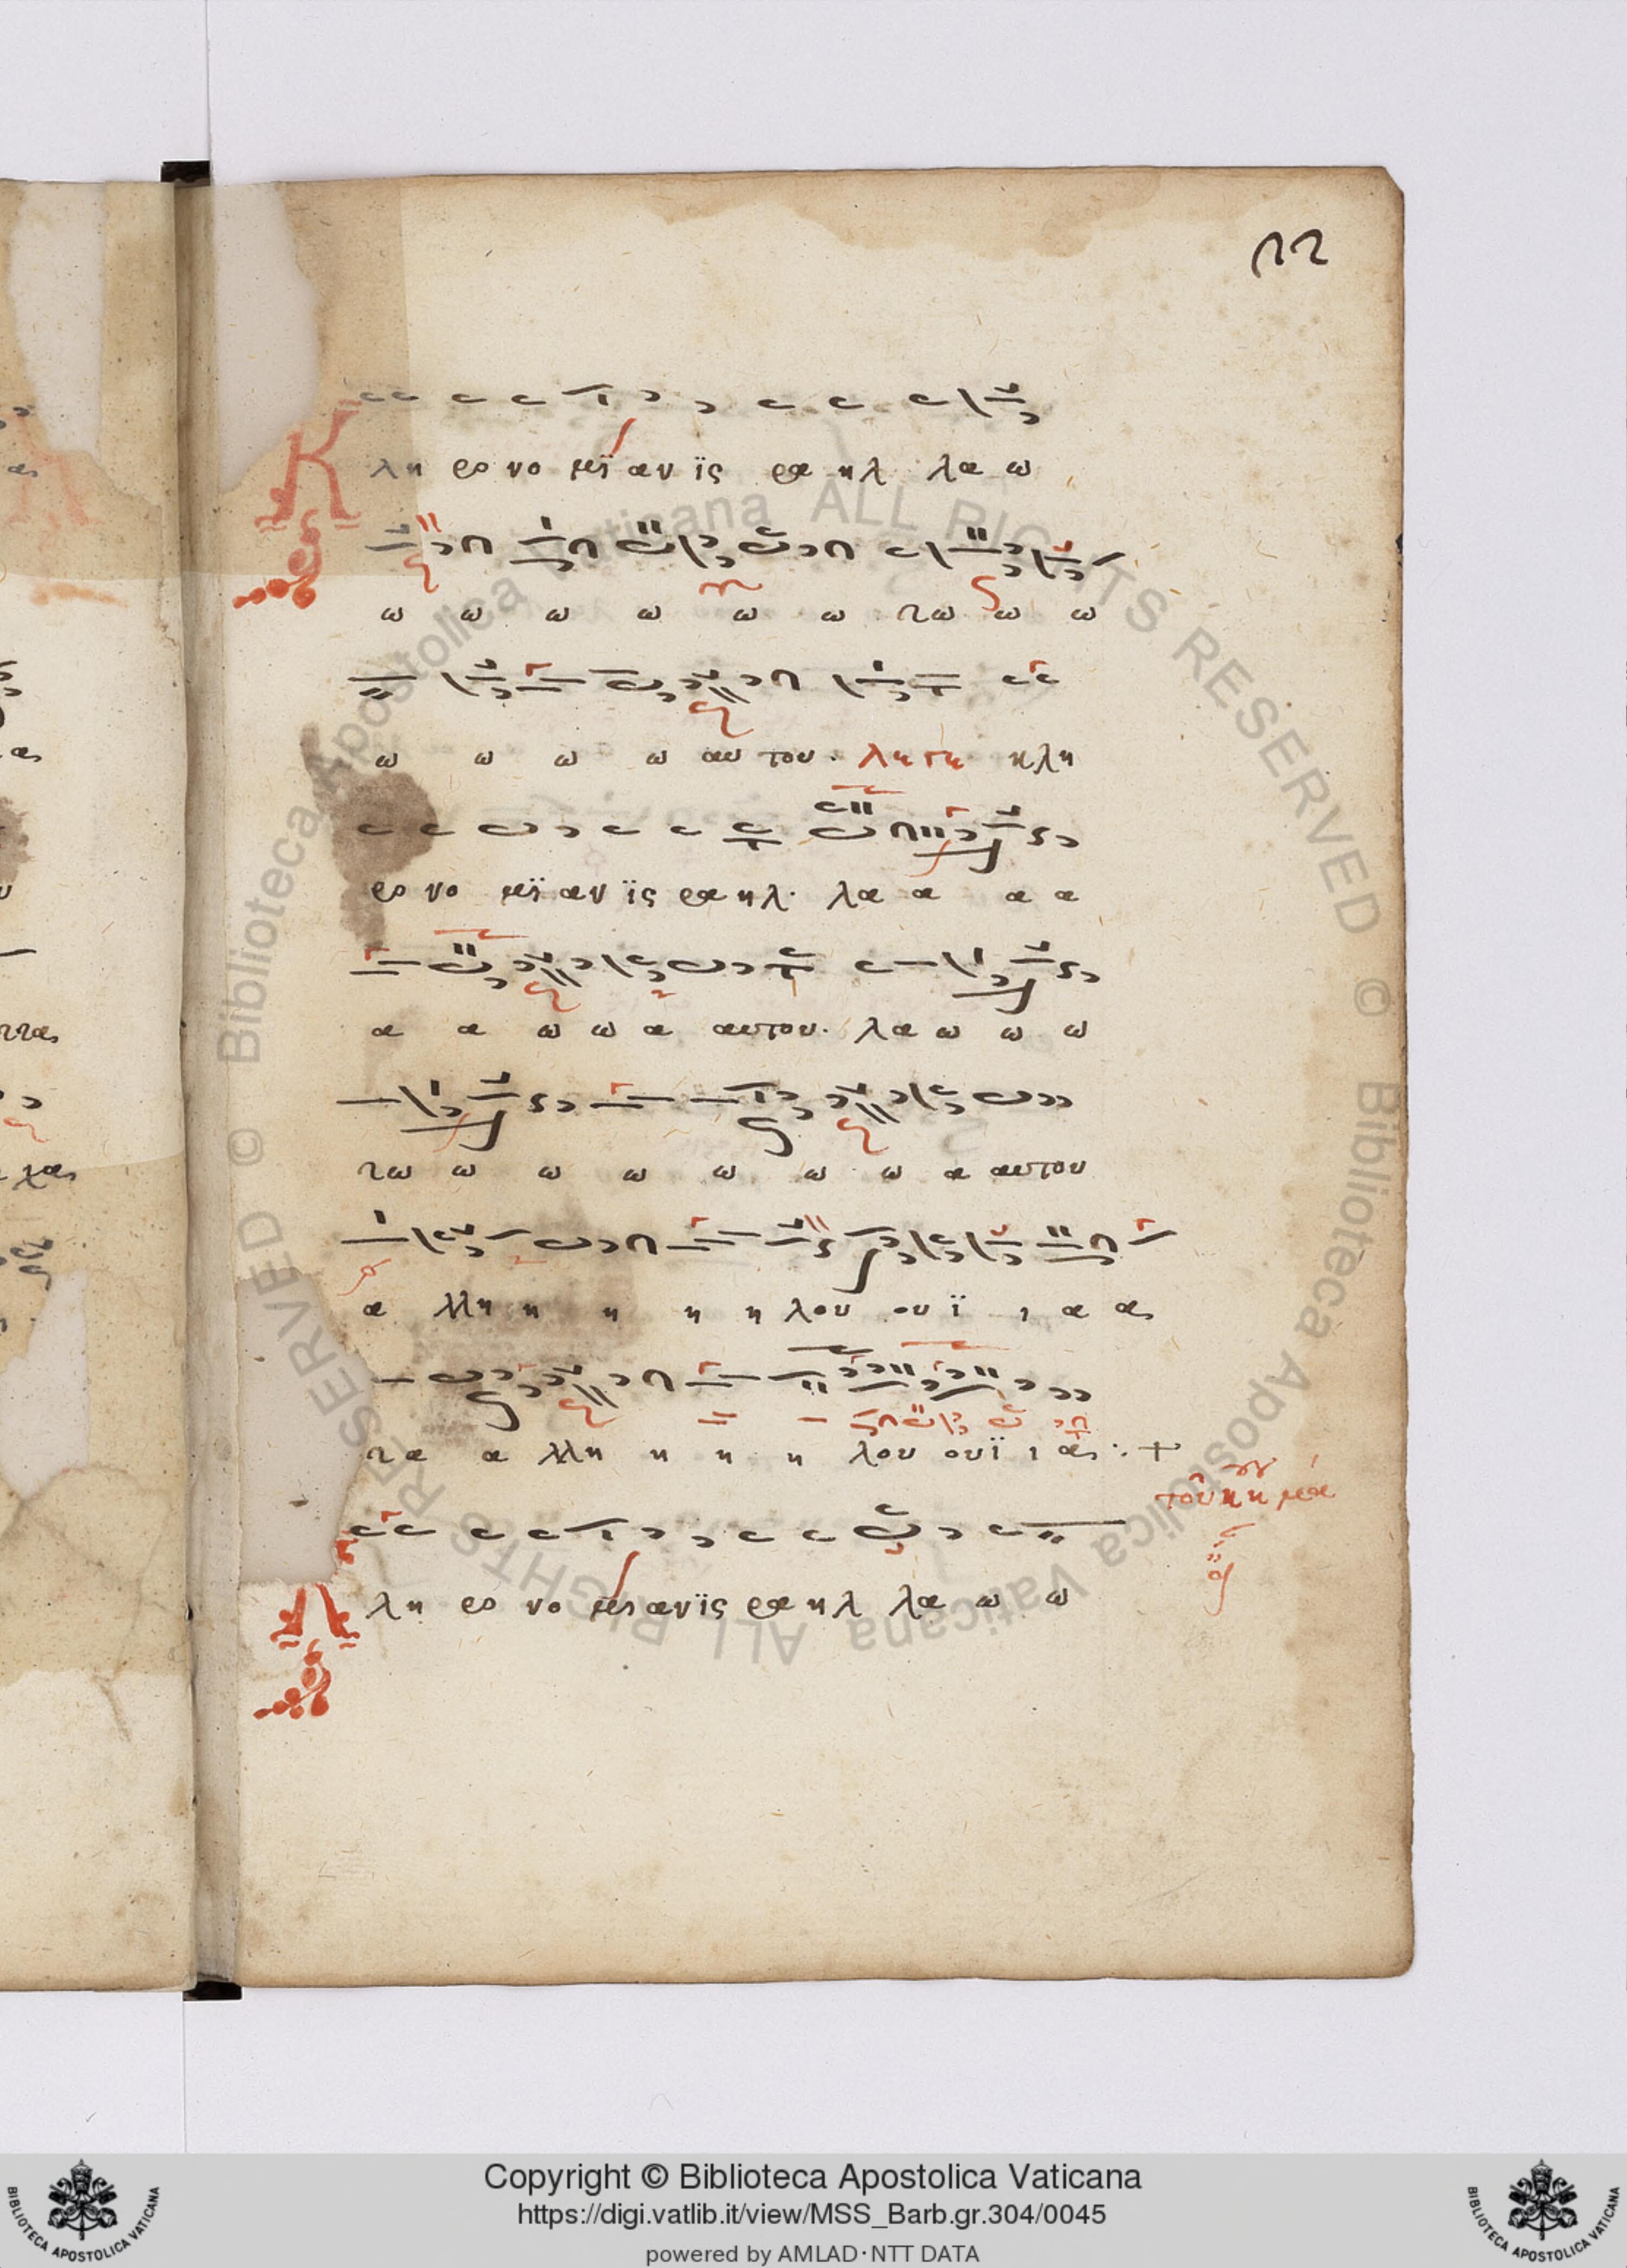 22
Κλη ρο νο μϊ αν ϊς ρα ηλ λα ω
ω ω ω ω ω ω τω ω ω
ω ω ω ω αυ του · λητη κλη
ρο νο μϊ αν ϊς ρα ηλ · λα α α α
α α ω ω α αυτου · λα ω ω ω
τω ω ω ω ω ω ω α αυτου
α λλη η η η η λου ου ϊ ι α α
τα α λλη η η η λου ουϊ ι α · +
Κλη ρο νο μι αν ϊς ρα ηλ λα ω ω
© Biblioteca Apostolica Vaticana ALL RIGHTS RESERVED © Biblioteca Apostolica Vaticana ALL RIGHTS RESERVED
Copyright © Biblioteca Apostolica Vaticana
https://digi.vatlib.it/view/MSS_Barb.gr.304/0045
powered by AMLAD·NTT DATA
BIBLIOTECA APOSTOLICA VATICANA
BIBLIOTECA APOSTOLICA VATICANA